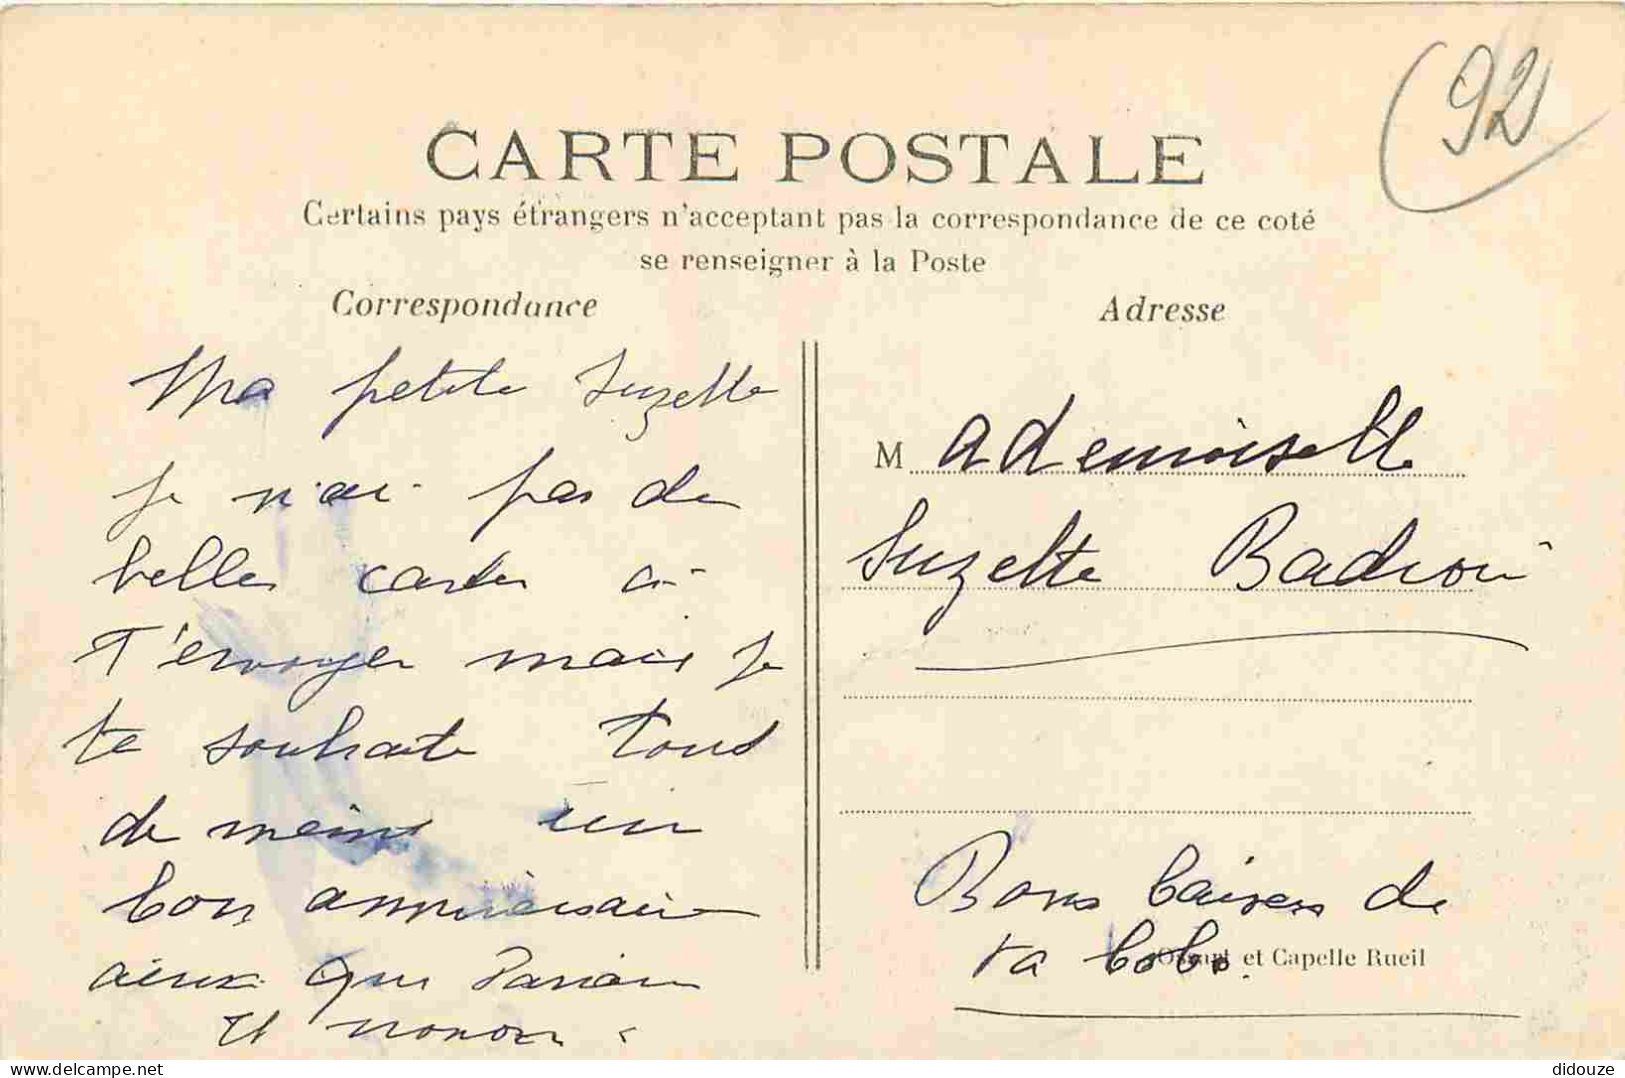 92
CARTE POSTALE
Certains pays étrangers n'acceptent pas la correspondance de ce coté
se renseigner à la Poste
Correspondance
Ma petite Suzette
je n'ai pas de
belles cartes à
t'envoyer mais je
te souhaite tous
de meme un
bon anniversaire
ainsi que
et nonon
Adresse
M ademoiselle
Suzette
Bons baisers de
ta bobo.
et Capelle Rueil
didouze